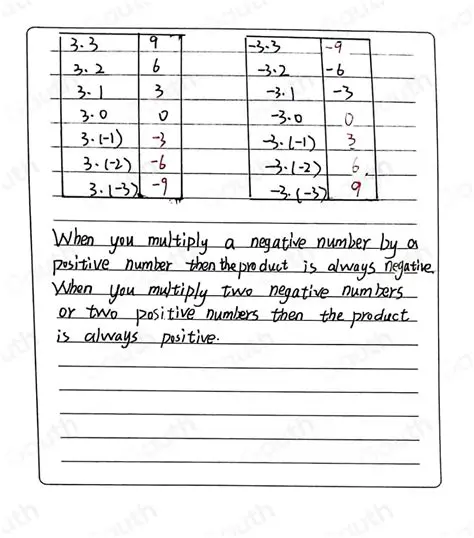 3·3 9 -3·3 -9
3·2 6 -3·2 -6
3·1 3 -3·1 -3
3·0 0 -3·0 0
3·(-1) -3 -3·(-1) 3
3·(-2) -6 -3·(-2) 6.
3·(-3) -9 -3·(-3) 9
When you multiply a negative number by a
positive number then the product is always negative.
When you multiply two negative numbers
or two positive numbers then the product
is always positive.